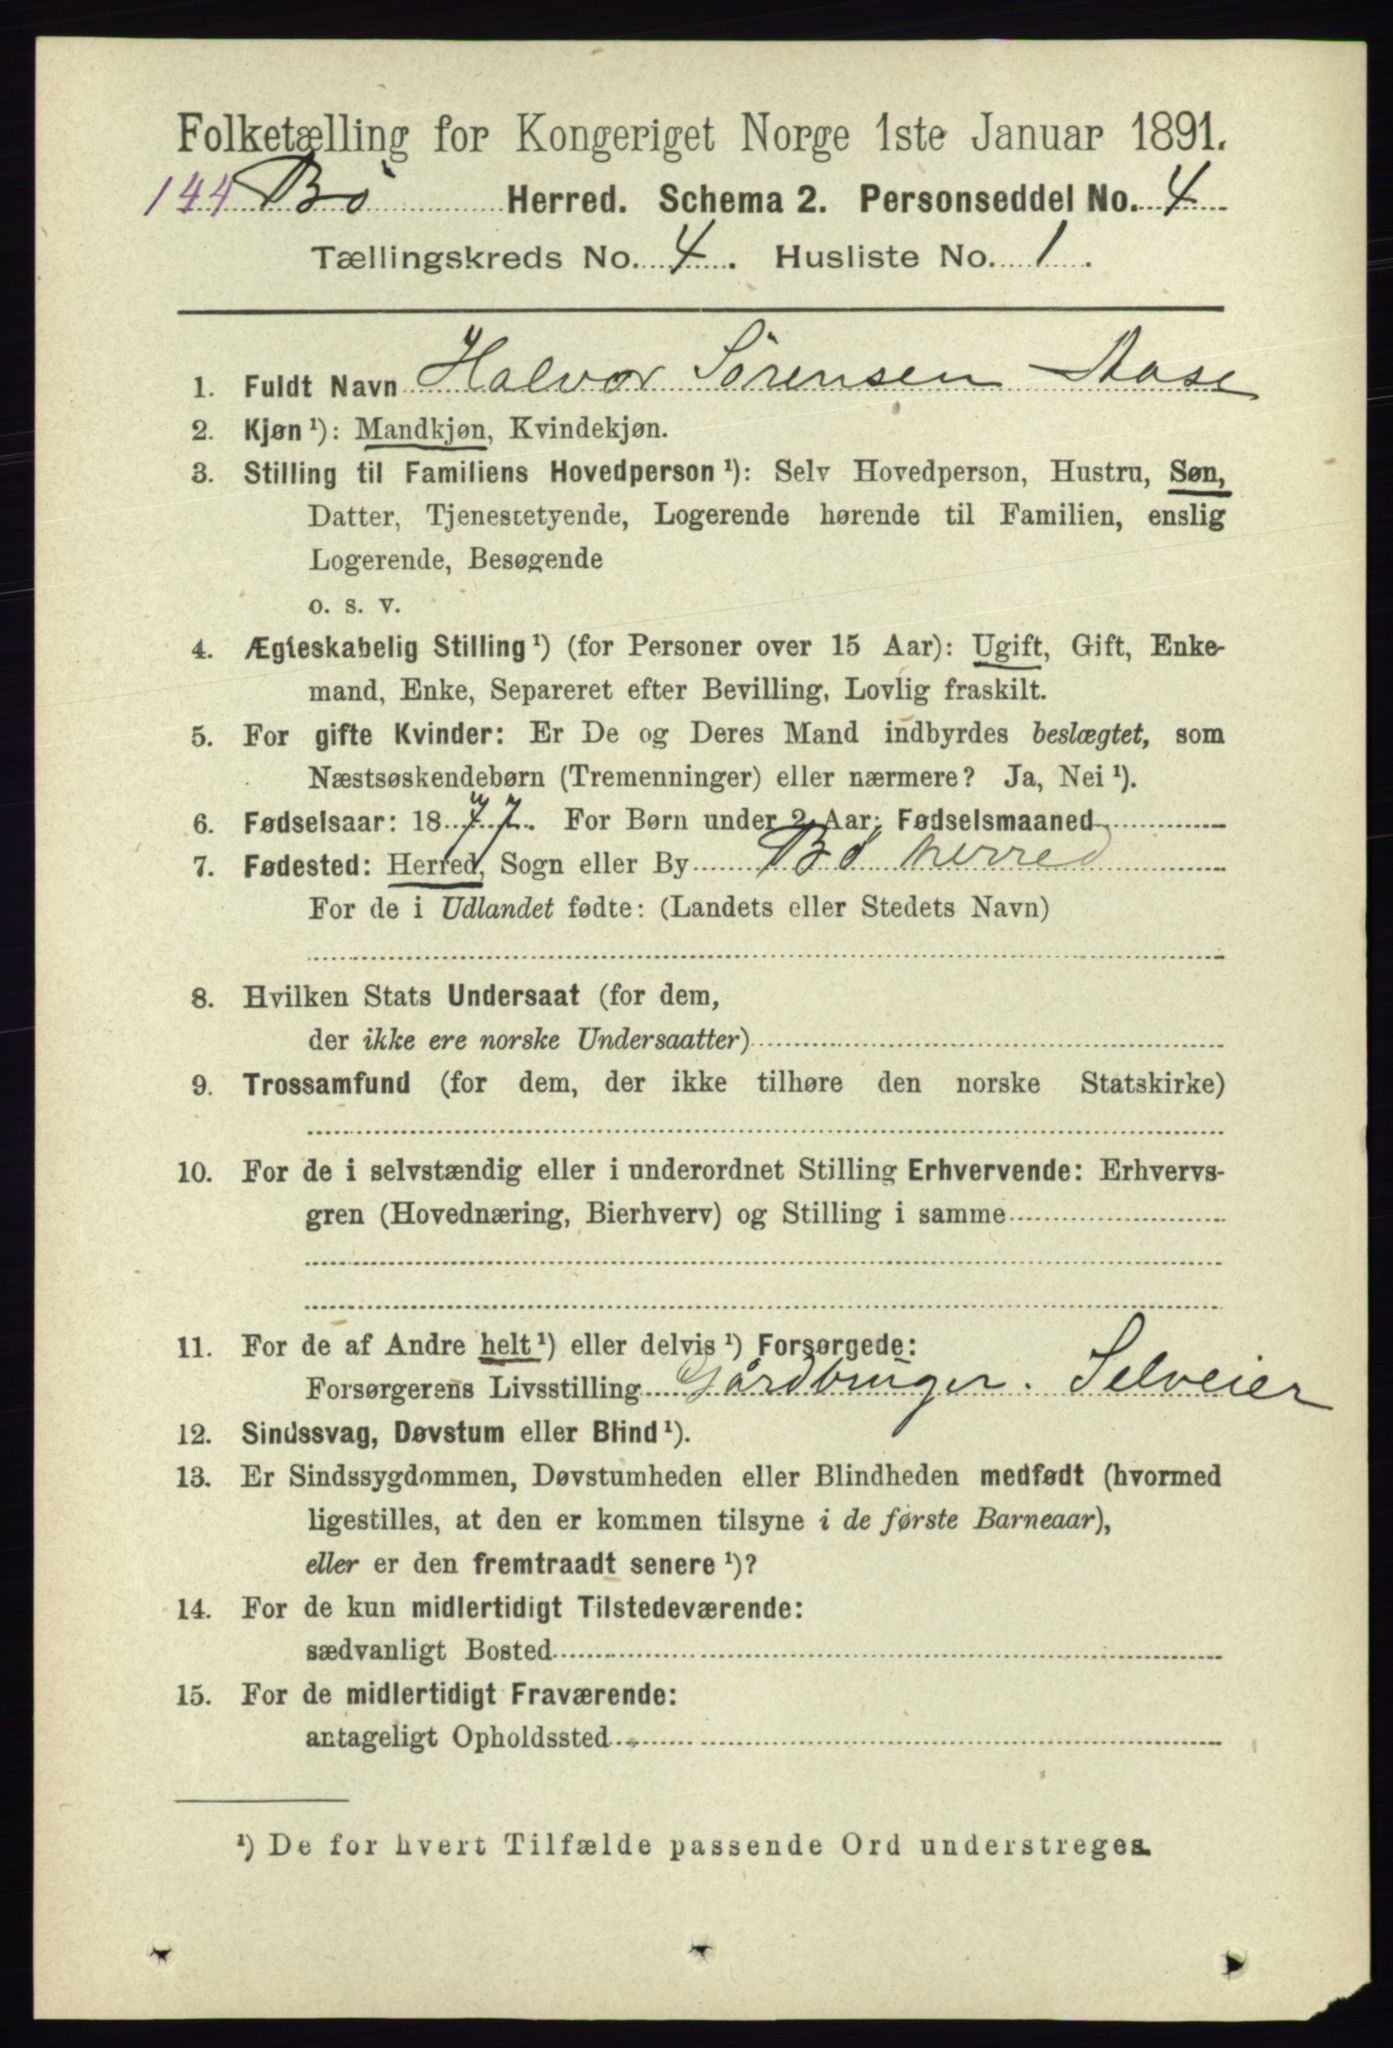 Folketælling for Kongeriget Norge 1ste Januar 1891.
144 Bø Herred. Schema 2. Personseddel No. 4
Tællingskreds No. 4. Husliste No. 1.
1. Fuldt Navn Halvor Sørensen Aase
2. Kjøn ¹): Mandkjøn, Kvindekjøn.
3. Stilling til Familiens Hovedperson ¹): Selv Hovedperson, Hustru, Søn,
Datter, Tjenestetyende, Logerende hørende til Familien, enslig
Logerende, Besøgende
o. s. v.
4. Ægteskabelig Stilling ¹) (for Personer over 15 Aar): Ugift, Gift, Enke-
mand, Enke, Separeret efter Bevilling, Lovlig fraskilt.
5. For gifte Kvinder: Er De og Deres Mand indbyrdes beslægtet, som
Næstsøskendebørn (Tremenninger) eller nærmere? Ja, Nei ¹).
6. Fødselsaar: 1877. For Børn under 2 Aar: Fødselsmaaned
7. Fødested: Herred, Sogn eller By Bø herred
For de i Udlandet fødte: (Landets eller Stedets Navn)
8. Hvilken Stats Undersaat (for dem,
der ikke ere norske Undersaatter)
9. Trossamfund (for dem, der ikke tilhøre den norske Statskirke)
10. For de i selvstændig eller i underordnet Stilling Erhvervende: Erhvervs-
gren (Hovednæring, Bierhverv) og Stilling i samme
11. For de af Andre helt ¹) eller delvis ¹) Forsørgede:
Forsørgerens Livsstilling Gårdbruger. Selveier
12. Sindssvag, Døvstum eller Blind ¹).
13. Er Sindssygdommen, Døvstumheden eller Blindheden medfødt (hvormed
ligestilles, at den er kommen tilsyne i de første Barneaar),
eller er den fremtraadt senere ¹)?
14. For de kun midlertidigt Tilstedeværende:
sædvanligt Bosted
15. For de midlertidigt Fraværende:
antageligt Opholdssted
¹) De for hvert Tilfælde passende Ord understreges.